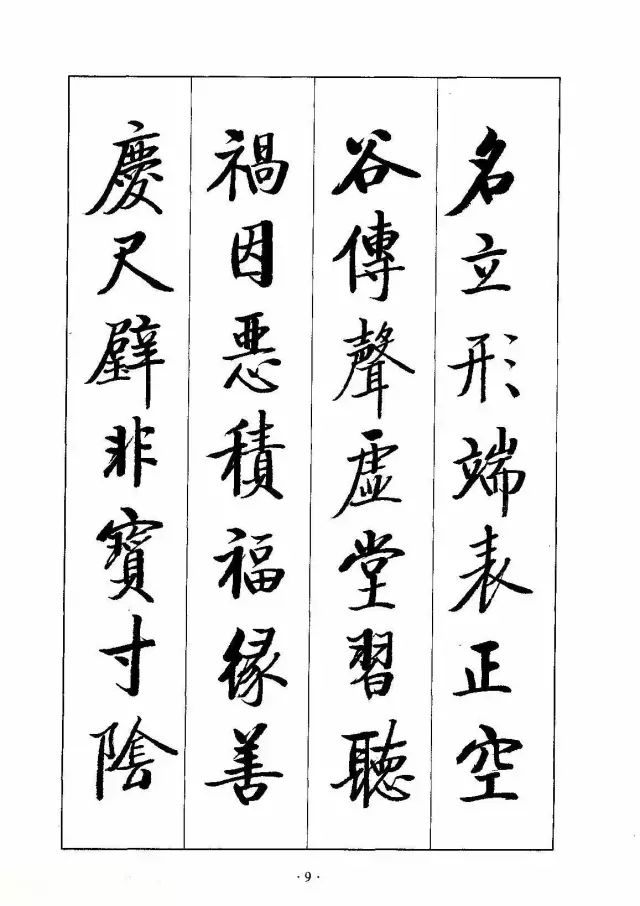 名立形端表正空
谷傳聲虛堂習聽
禍因惡積福緣善
慶尺璧非寶寸陰
·9·